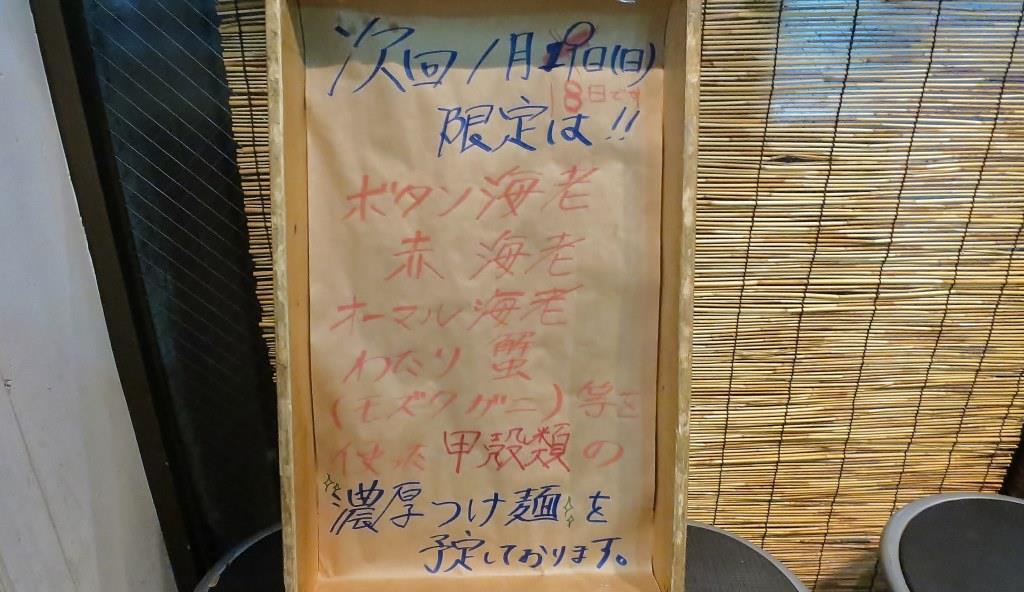 次回1月19日(日)
18日です
限定は!!
ボタン海老
赤海老
オーマル海老
わたり蟹
(モズクガニ)等を
使った甲殻類の
濃厚つけ麺を
予定しております。